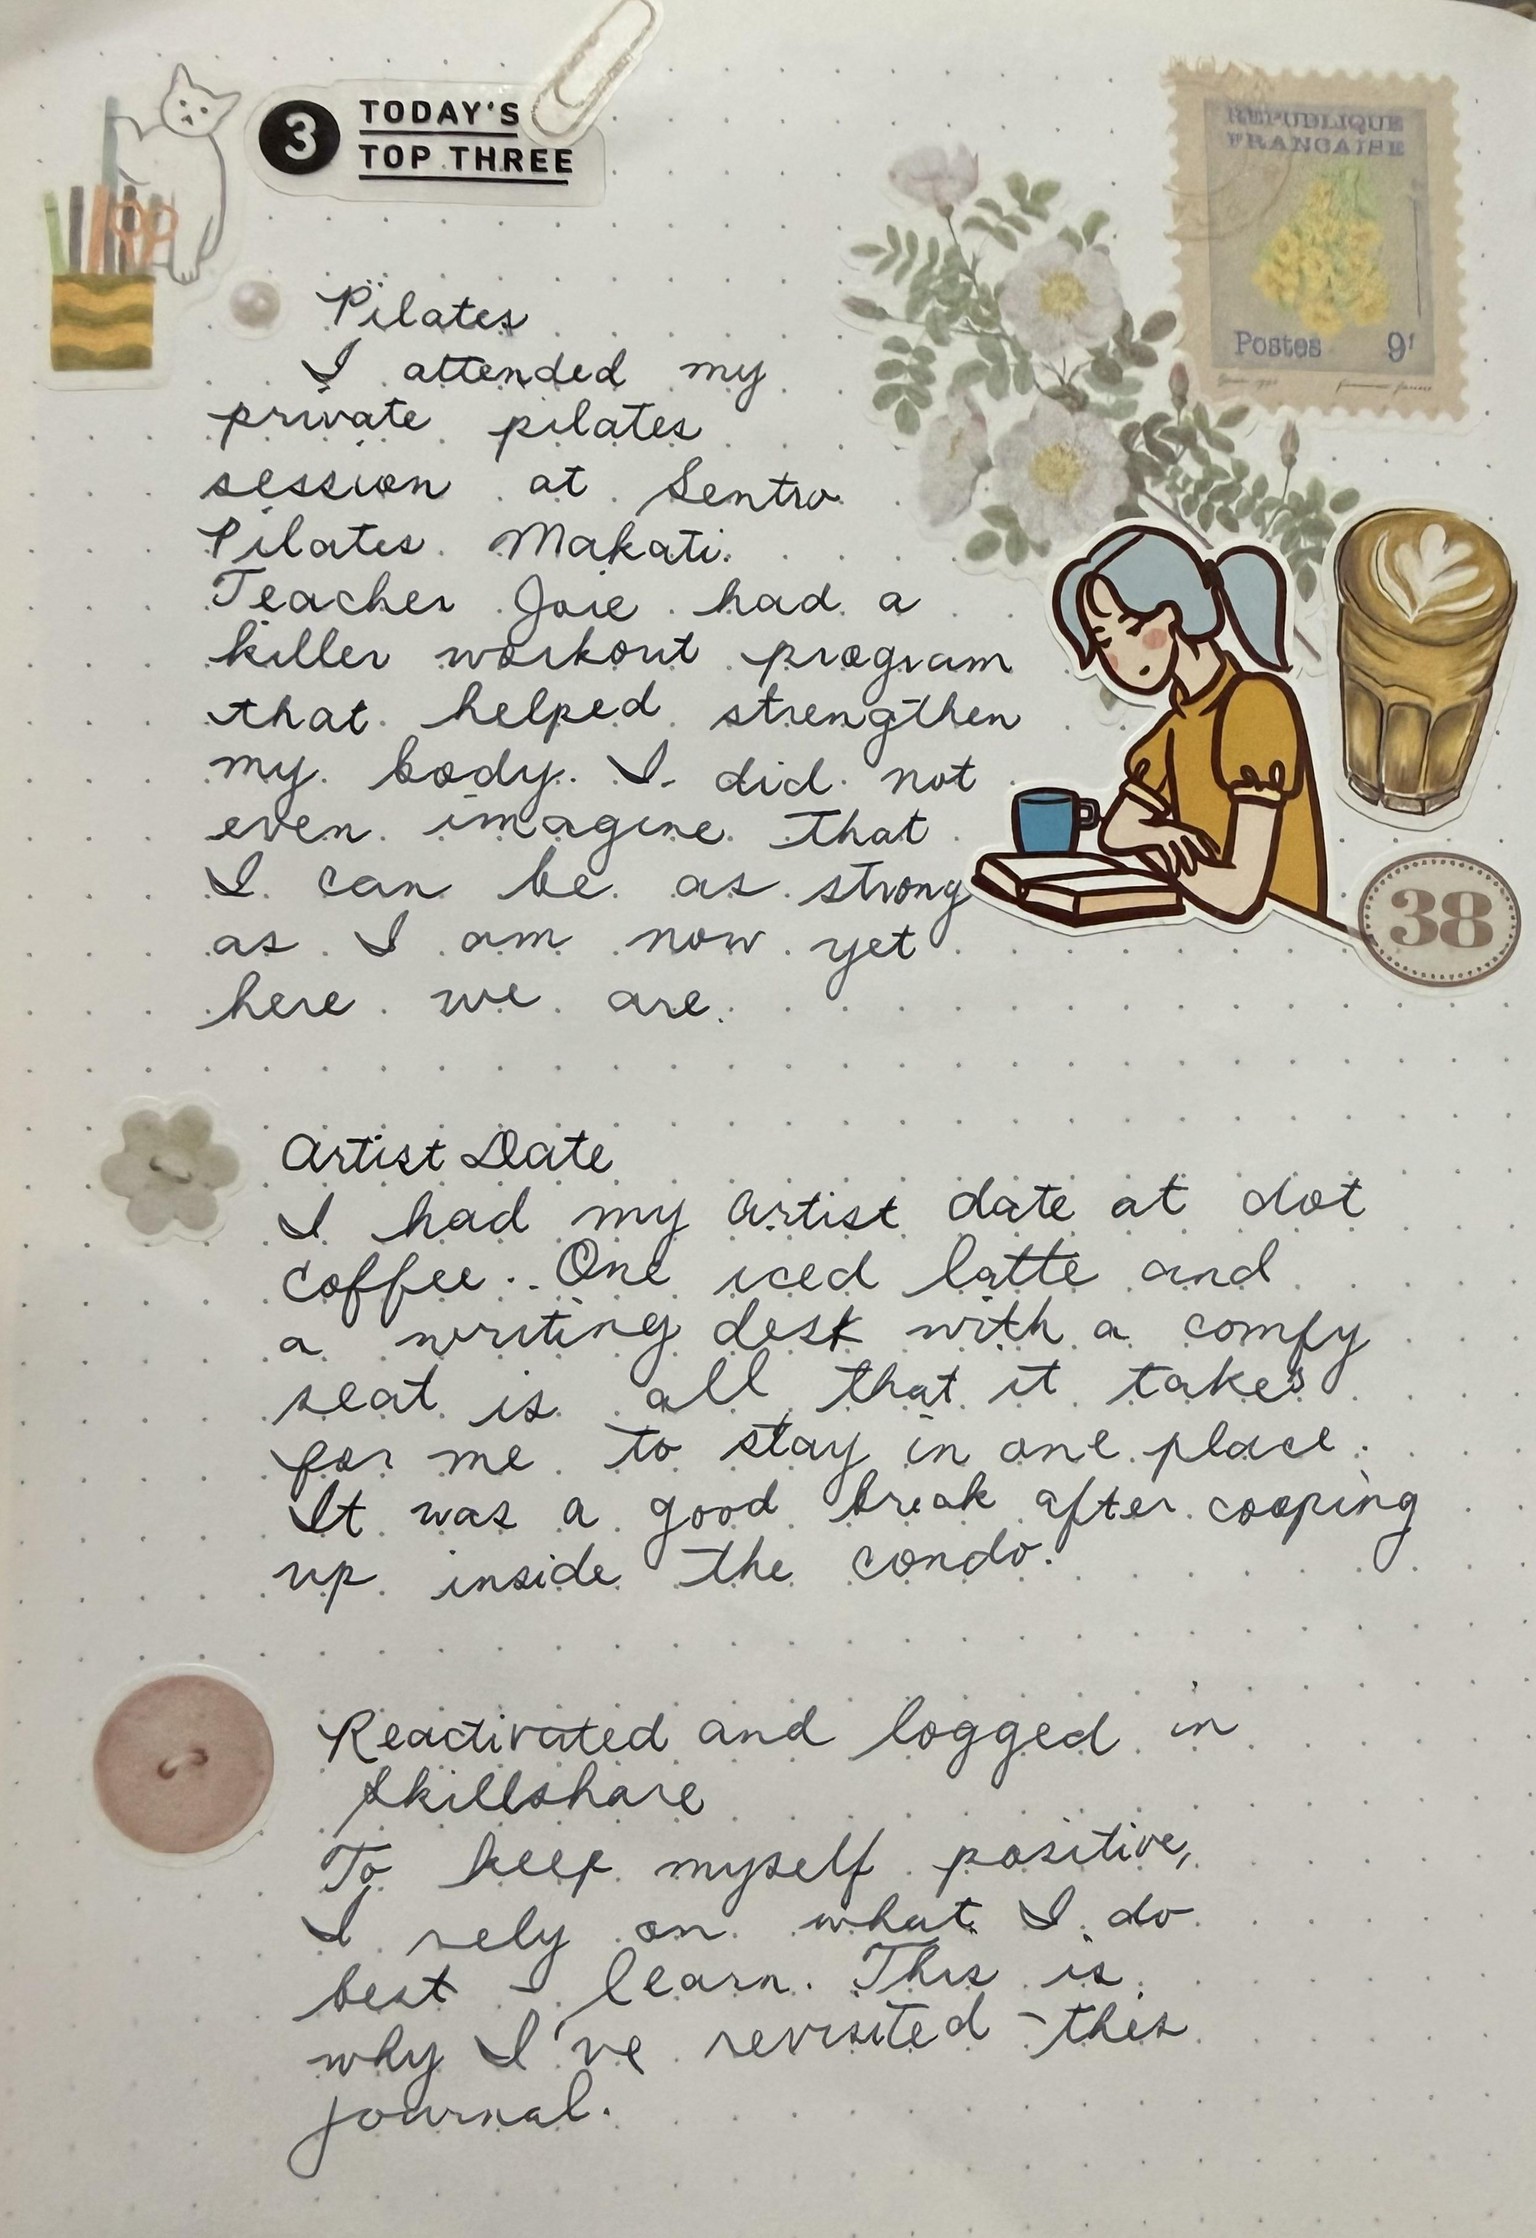 3 TODAY'S
TOP THREE
REPUBLIQUE
FRANCAISE
Postes 9f
Pilates
I attended my
private pilates
session at Sentro
Pilates Makati.
Teacher Joie had a
killer workout program
that helped strengthen
my body. I did not
even imagine that
I can be as strong
as I am now yet
here we are.
38
Artist Date
I had my Artist date at dot
coffee. One iced latte and
a writing desk with a comfy
seat is all that it takes
for me to stay in one place.
It was a good break after cooping
up inside the condo.
Reactivated and logged in
Skillshare
To keep myself positive,
I rely on what I do
best - learn. This is
why I've revisited this
journal.